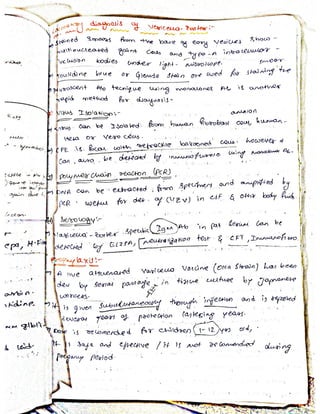 Laboratory diagnosis of Varicella-Zoster:-
Stained smears from the base of early vesicles show -
multinucleated giant cells and type-A intranuclear -
inclusion bodies under light- microscope. smear
Toluidine blue or Giemsa stain are used for staining the
fluorescent Ab technique using monoclonal Ab is another
rapid method for diagnosis-
Virus Isolation:-
Virus can be Isolated from human fibroblast cells, human
Hela or vero cells.
CPE is focal with refractile ballooned cells. however it
Can, also, be detected by immunofluoro using Ab.
Polymerchain reaction (PCR)
DNA can be extracted, from specimens and amplified by
PCR. useful for det. of (VZV) in CSF & other body fluids
Serology:-
Varicella-zoster specific IgM Ab in pat serum can be
detected by ELISA, neutralization test & CFT, Immunofluoro
Prophylaxis:-
A live attenuated varicella vaccine (OKA strain) has been
dev by serial passage in tissue culture by Japanese
workers.
It is given subcutaneously through injection and is
several years of protection years.
is recomended for children (1-12) yrs old,
It is safe and effective / it is not recomended during
pregnancy period